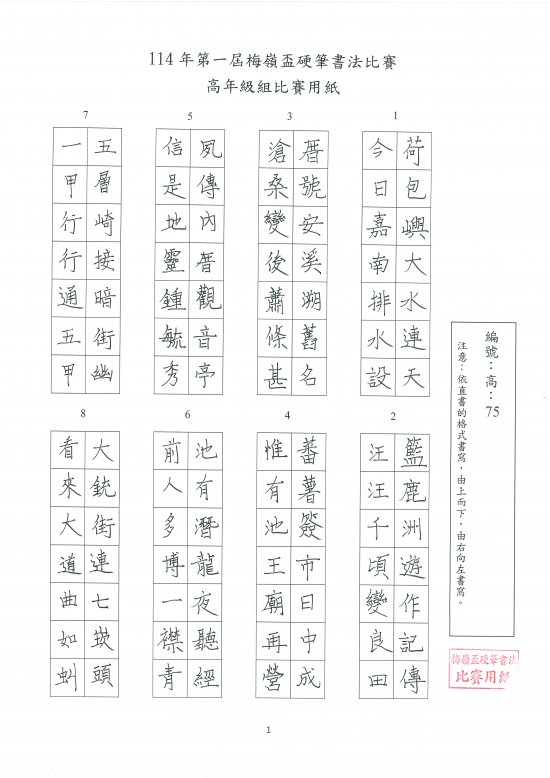 114 年第一屆梅嶺盃硬筆書法比賽
高年級組比賽用紙
1
荷包嶼大水連天
今日嘉南排水設
2
籃鹿洲遊作記傳
汪汪千頃變良田
3
厝號安溪溯舊名
滄桑變後蕭條甚
4
蕃薯簽市日中成
惟有池王廟再營
5
夙傳內厝觀音亭
信是地靈鍾毓秀
6
池有潛龍夜聽經
前人多博一襟青
7
五層崎接暗街幽
一甲行行通五甲
8
大銃街連七崁頭
看來大道曲如虯
編號：高：75
注意：依直書的格式書寫，由上而下，由右向左書寫。
梅嶺盃硬筆書法
比賽用紙
1